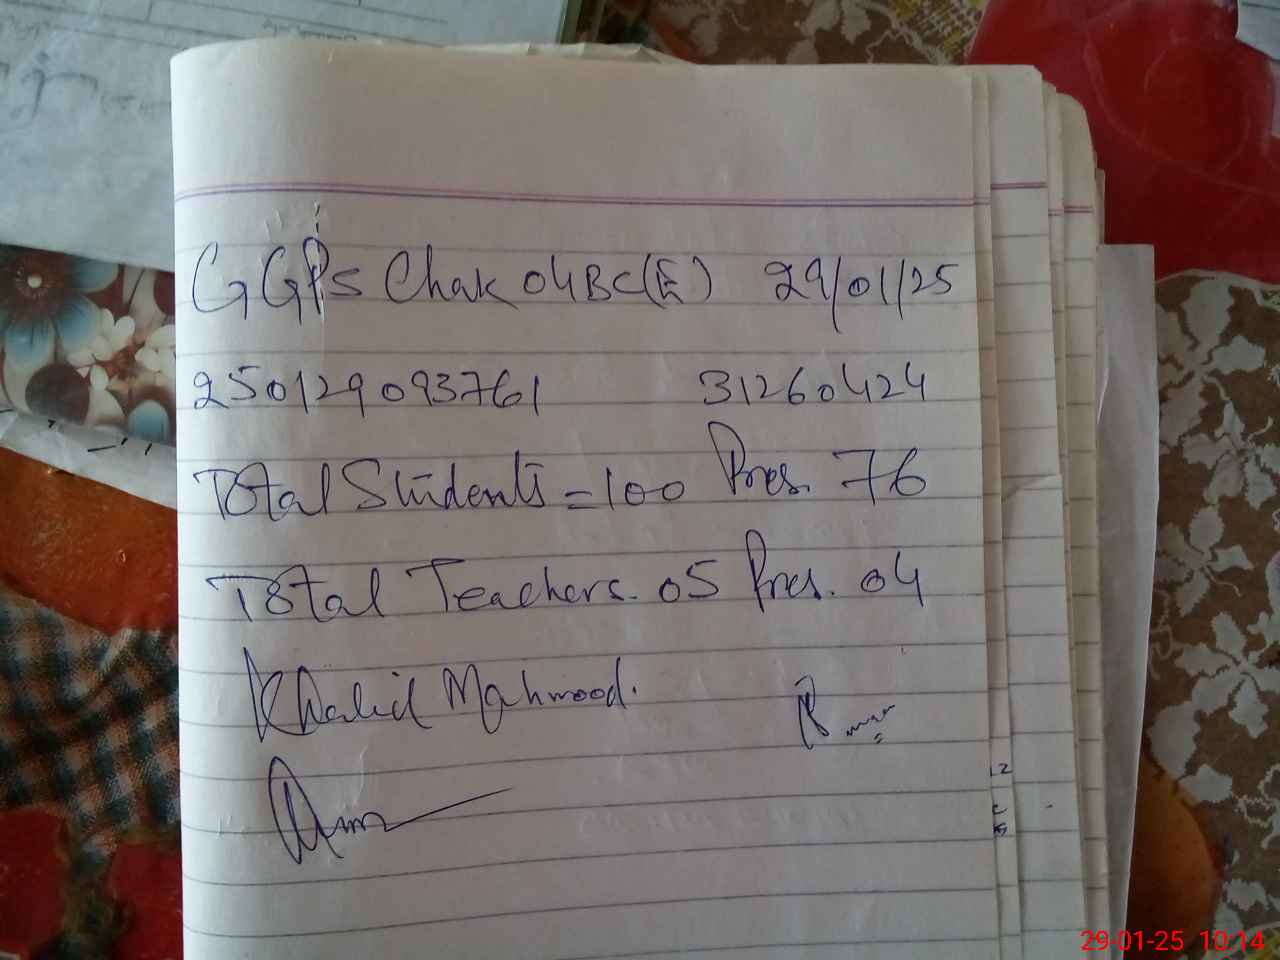 GGPS Chak 04BC(E) 29/01/25
250129093761 31260424
Total Students = 100 Pres. 76
Total Teachers. 05 Pres. 04
Khalid Mahmood.
29-01-25 10:14